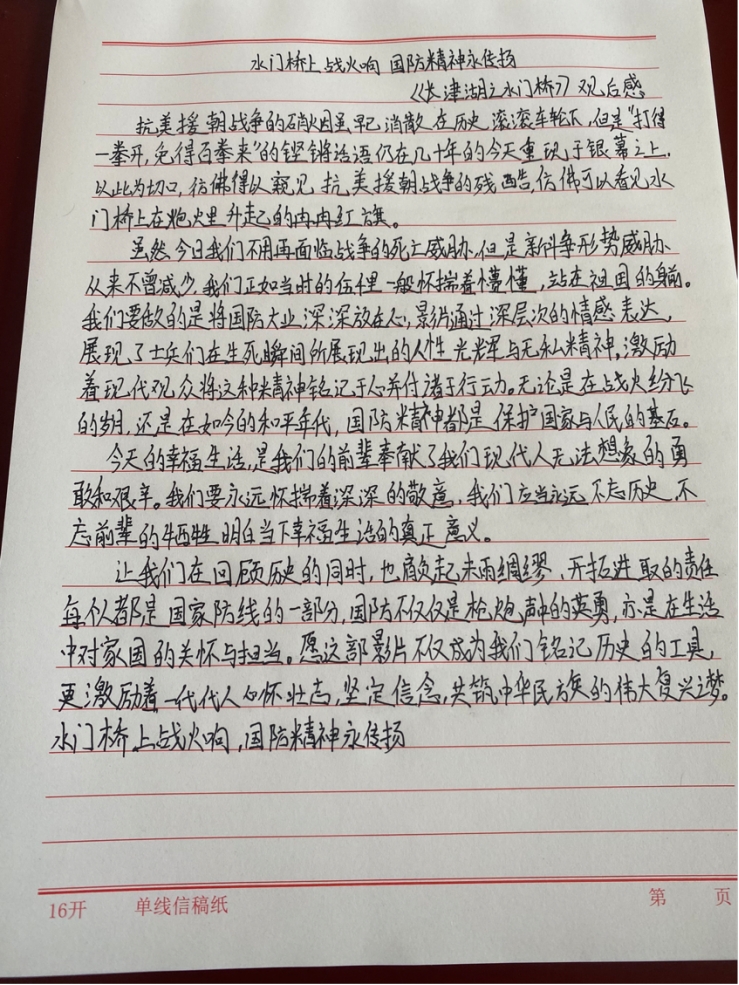 水门桥上战火响 国防精神永传扬
《长津湖之水门桥》观后感
抗美援朝战争的硝烟虽早已消散在历史滚滚车轮下,但是“打得
一拳开,免得百拳来”的铿锵话语仍在几十年的今天重现于银幕之上,
以此为切口,仿佛得以窥见抗美援朝战争的残酷,仿佛可以看见水
门桥上在炮火里升起的冉冉红旗。
虽然今日我们不用再面临战争的死亡威胁,但是新斗争形势威胁
从来不曾减少,我们正如当时的伍千里一般怀揣着懵懂,站在祖国的身前。
我们要做的是将国防大业深深放在心,影片通过深层次的情感表达,
展现了士兵们在生死瞬间所展现出的人性光辉与无私精神,激励
着现代观众将这种精神铭记于心并付诸于行动。无论是在战火纷飞
的岁月,还是在如今的和平年代,国防精神都是保护国家与人民的基石。
今天的幸福生活,是我们的前辈奉献了我们现代人无法想象的勇
敢和艰辛。我们要永远怀揣着深深的敬意,我们应当永远不忘历史,不
忘前辈的牺牲,明白当下幸福生活的真正意义。
让我们在回顾历史的同时,也肩负起未雨绸缪、开拓进取的责任
每个人都是国家防线的一部分,国防不仅仅是枪炮声中的英勇,亦是在生活
中对家国的关怀与担当。愿这部影片不仅成为我们铭记历史的工具,
更激励着一代代人心怀壮志,坚定信念,共筑中华民族的伟大复兴之梦。
水门桥上战火响,国防精神永传扬
16开 单线信稿纸 第 页